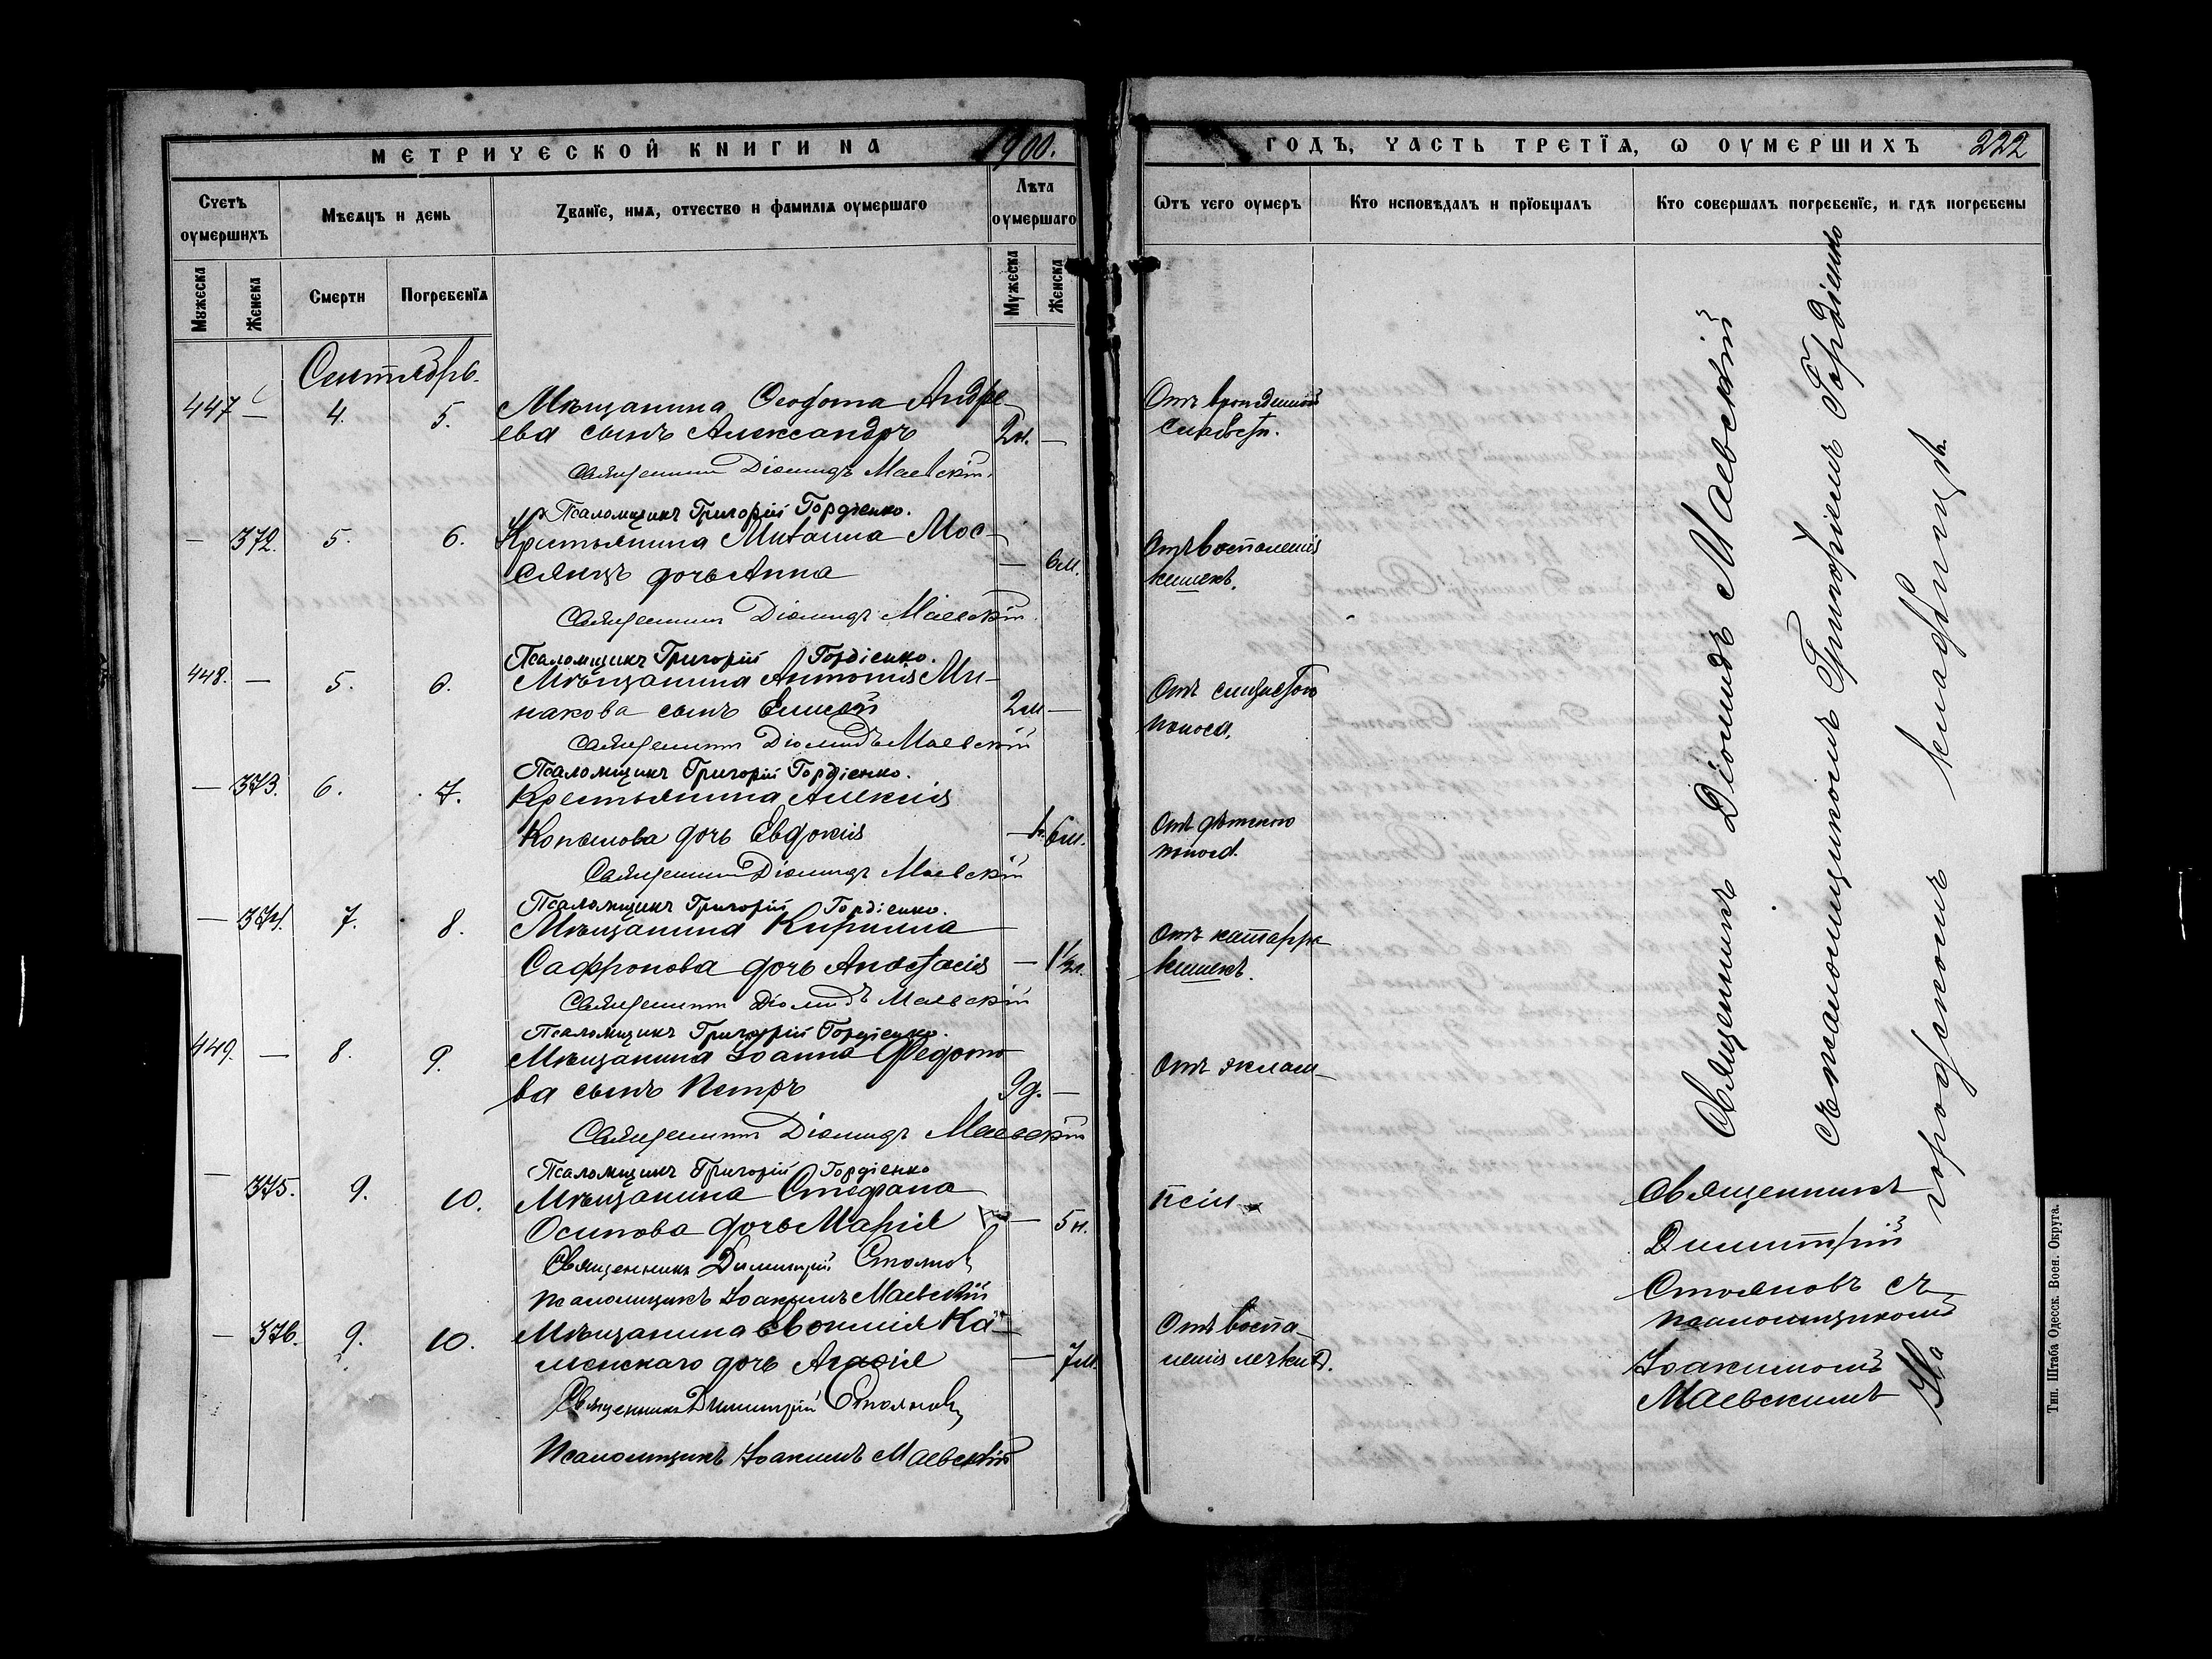 МЕТРИЧЕСКОЙ КНИГИ НА 1900.
Счетъ оумершихъ
Мѣсяцъ и день
Званїе, имя, отчество и фамилія оумершаго
Лѣта оумершаго
Мужеска
Женска
Смерти
Погребенїя
Мужеска
Женска
Сентябрь.
447 — 4. 5. Мѣщанина Ѳеодота Андре-
ева сынъ Александръ 2н. —
Священникъ Діомидъ Маевскій.
Псаломщикъ Григорій Гордіенко.
— 372. 5. 6. Крестьянина Михаила Мос-
сянцъ дочь Анна — 6м.
Священникъ Діомидъ Маевскій.
Псаломщикъ Григорій Гордіенко.
448. — 5. 6. Мѣщанина Антонія Ми-
накова сынъ Елисей 2м —
Священникъ Діомидъ Маевскій
Псаломщикъ Григорій Гордіенко.
— 373. 6. 7. Крестьянина Алексія
Копылова дочь Евдокія — 6м.
Священникъ Діомидъ Маевскій
Псаломщикъ Григорій Гордіенко.
— 374. 7. 8. Мѣщанина Кирилла
Сафронова дочь Анастасія — 1½
Священникъ Діомидъ Маевскій
Псаломщикъ Григорій Гордіенко.
449. — 8. 9. Мѣщанина Іоанна Федото-
ва сынъ Петръ 9д. —
Священникъ Діомидъ Маевскій
Псаломщикъ Григорій Гордіенко
— 375. 9. 10. Мѣщанина Стефана
Осипова дочь Марія — 5н.
Священникъ Димитрій Стояновъ
Псаломщикъ Іоакимъ Маевскій
— 376. 9. 10. Мѣщанина
менскаго дочь Агафія — 7м.
Священникъ Димитрій Стояновъ
Псаломщикъ Іоакимъ Маевскій
ГОДЪ, ЧАСТЬ ТРЕТЇЯ, Ѡ ОУМЕРШИХЪ 222
Ѿтъ чего оумеръ
Кто исповѣдалъ и прїобщалъ
Кто совершалъ погребенїе, и гдѣ погребены
Отъ врожденной
слабости.
Отъ воспаленія
кишекъ.
Отъ слизистого
поноса.
Отъ дѣтского
поноса.
Отъ катарра
кишекъ.
Отъ эклам-
псіи
Отъ воспа-
ленія легкихъ.
Священникъ Діомидъ Маевскій
съ псаломщикомъ Григоріемъ Гордіенко
На городскомъ кладбищѣ.
Священникъ
Димитрій
Стояновъ съ
псаломщикомъ
Іоакимомъ
Маевскимъ
Тип. Штаба Одесск. Воен. Округа.